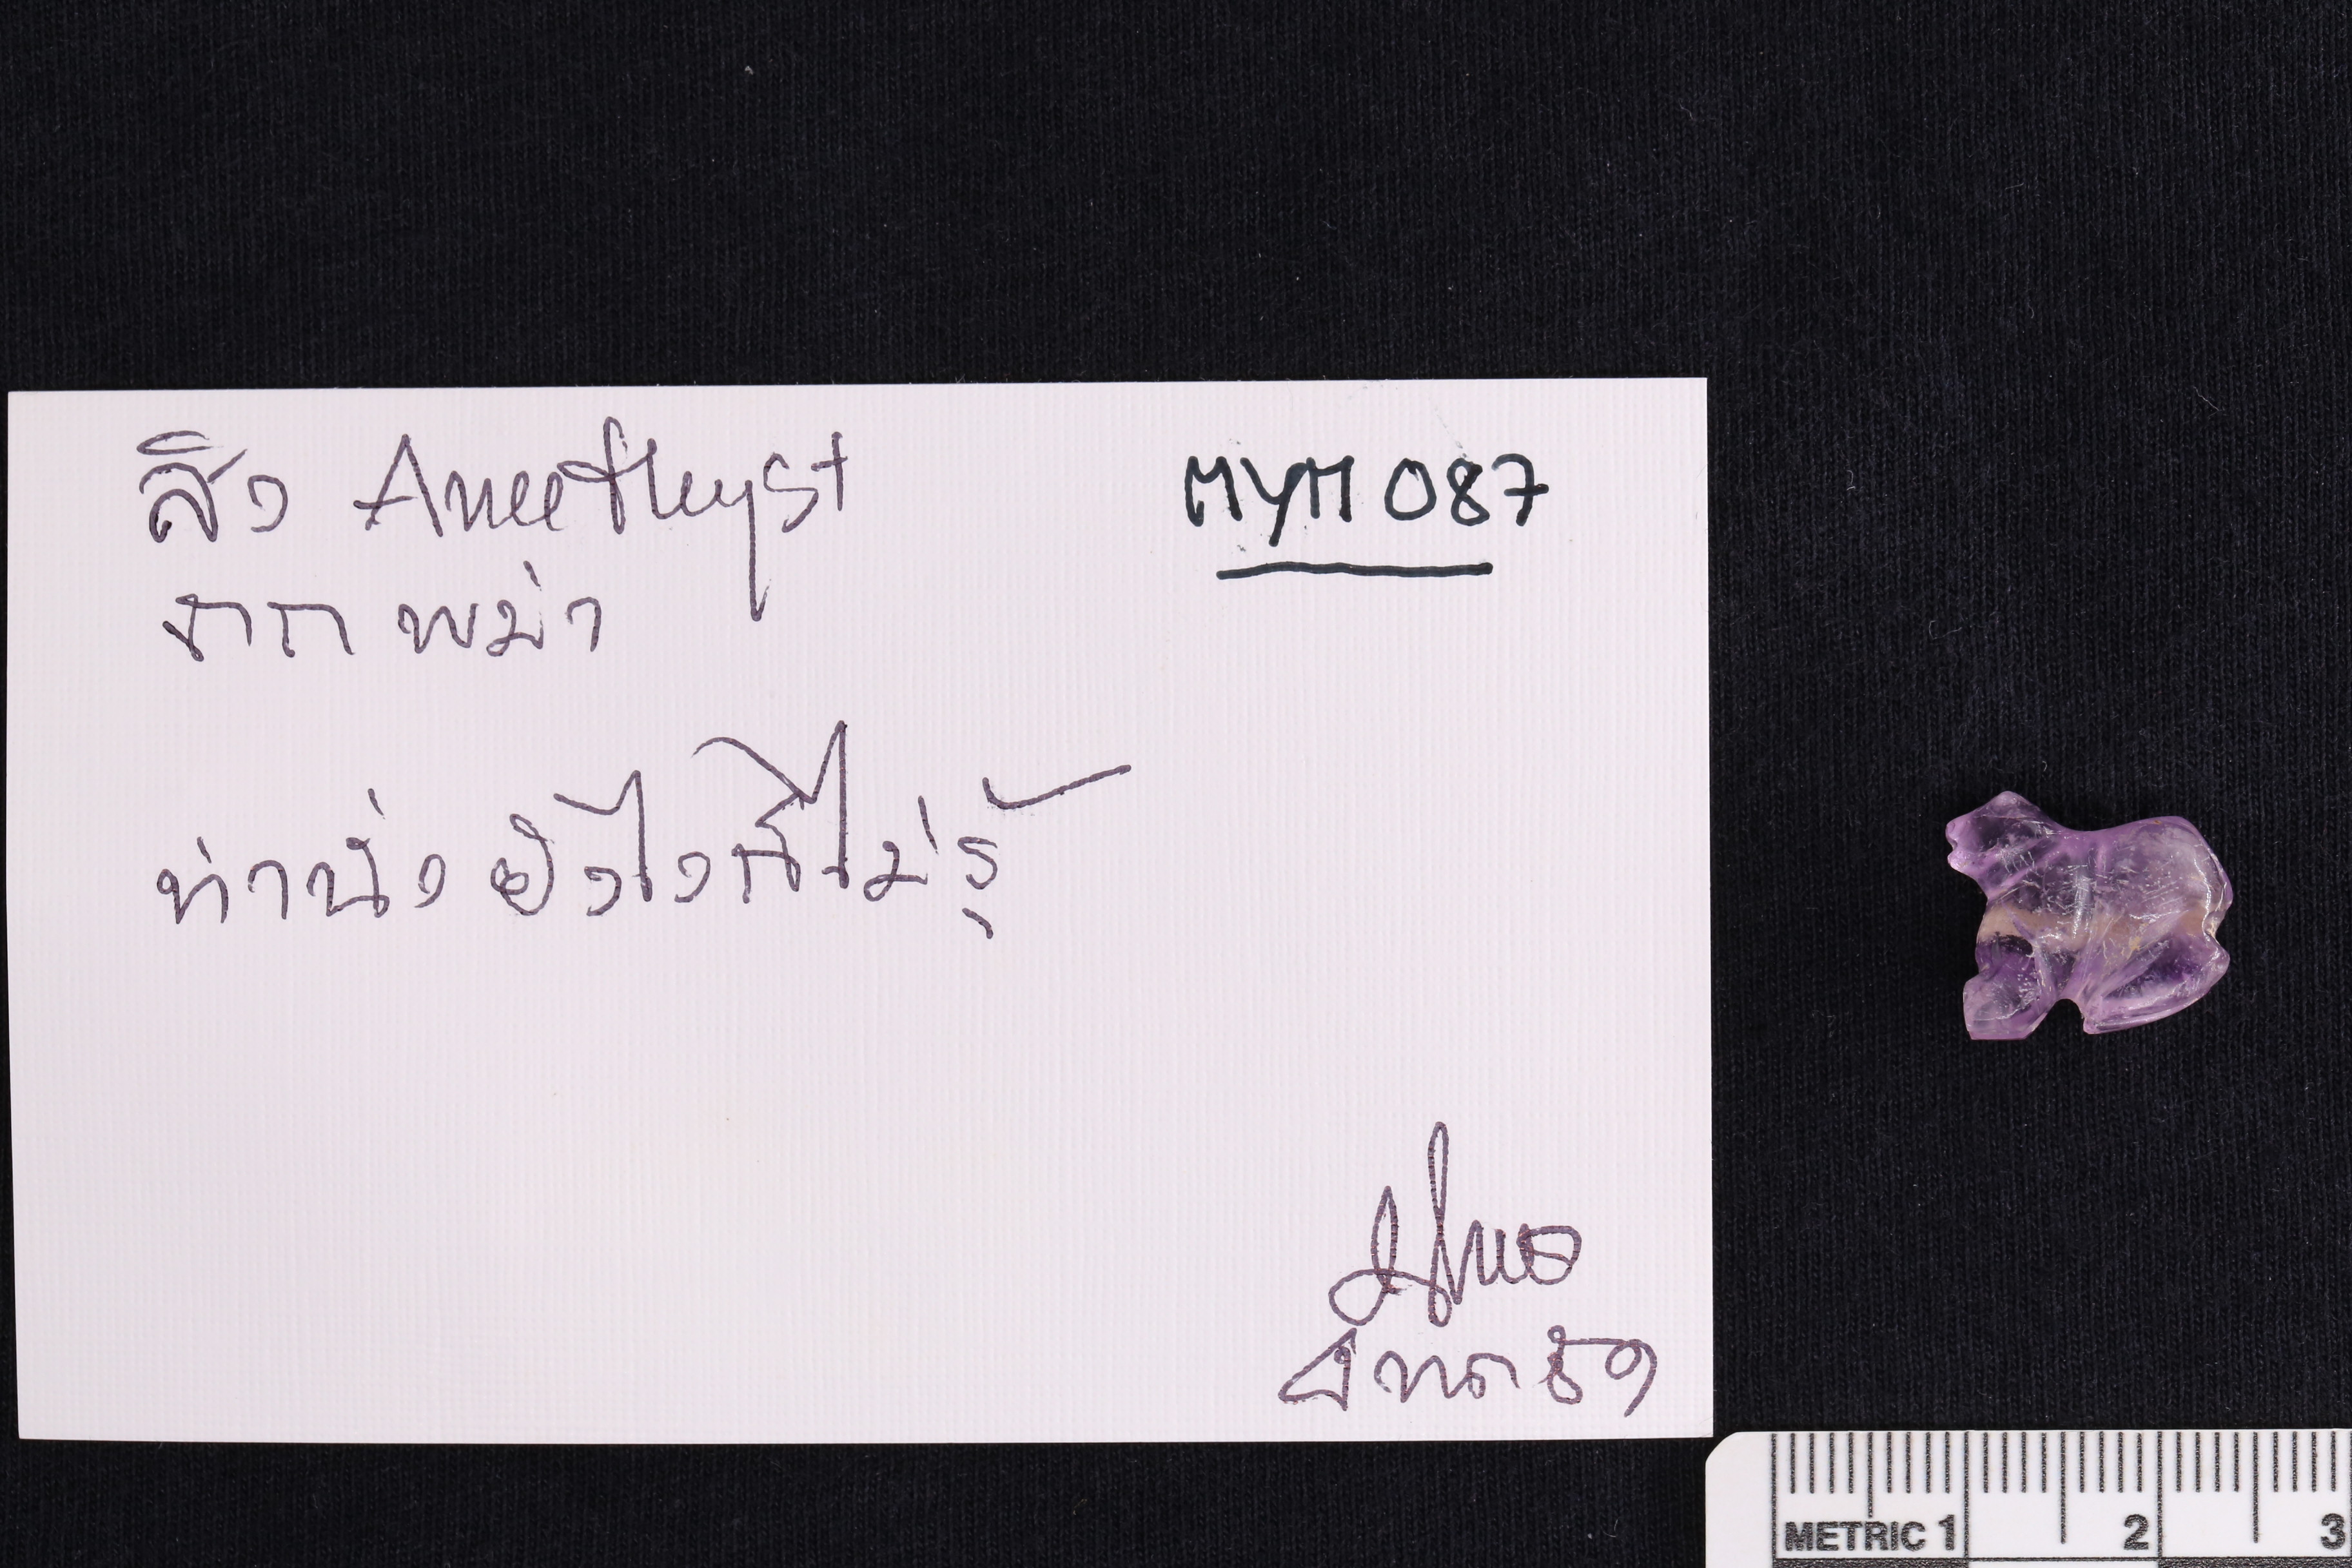 สิง Amethyst
MYM 087
จากพม่า
ท่านั่งยังไงก็ไม่รู้
METRIC 1 2 3